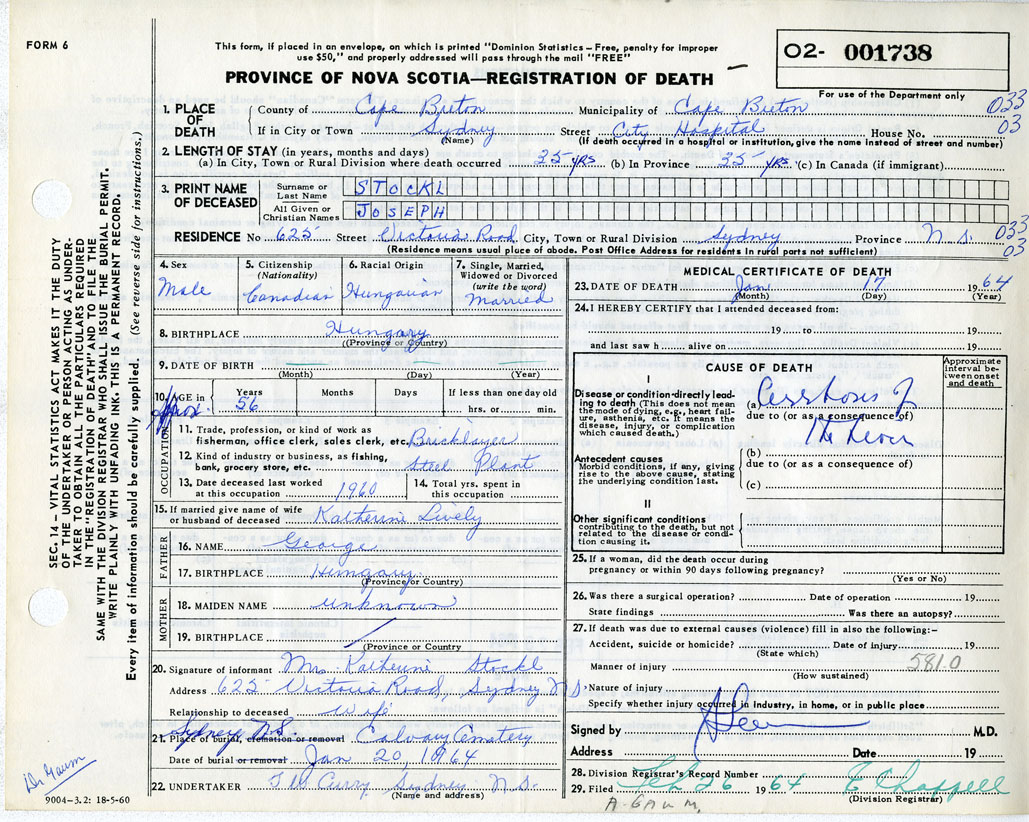 FORM 6
This form, if placed in an envelope, on which is printed "Dominion Statistics – Free, penalty for improper
use $50," and properly addressed will pass through the mail "FREE"
PROVINCE OF NOVA SCOTIA—REGISTRATION OF DEATH
O2- 001738
For use of the Department only
1. PLACE OF DEATH County of Cape Breton Municipality of Cape Breton 033
If in City or Town Sydney Street City Hospital House No. 03
(Name) (If death occurred in a hospital or institution, give the name instead of street and number)
2. LENGTH OF STAY (in years, months and days)
(a) In City, Town or Rural Division where death occurred 35 yrs (b) In Province 35 yrs. (c) In Canada (if immigrant)
3. PRINT NAME OF DECEASED
Surname or Last Name STOCKL
All Given or Christian Names JOSEPH
RESIDENCE No 625 Street Victoria Road City, Town or Rural Division Sydney Province N.S. 033
(Residence means usual place of abode. Post Office Address for residents in rural parts not sufficient) 03
4. Sex Male
5. Citizenship (Nationality) Canadian
6. Racial Origin Hungarian
7. Single, Married, Widowed or Divorced (write the word) Married
8. BIRTHPLACE Hungary
(Province or Country)
9. DATE OF BIRTH
(Month) (Day) (Year)
10. AGE in Years Months Days If less than one day old
Approx. 56 hrs. or min.
OCCUPATION
11. Trade, profession, or kind of work as
fisherman, office clerk, sales clerk, etc. Bricklayer
12. Kind of industry or business, as fishing,
bank, grocery store, etc. Steel Plant
13. Date deceased last worked
at this occupation 1960
14. Total yrs. spent in
this occupation
15. If married give name of wife
or husband of deceased Katherine Lively
FATHER
16. NAME George
17. BIRTHPLACE Hungary
(Province or Country)
MOTHER
18. MAIDEN NAME unknown
19. BIRTHPLACE
(Province or Country)
20. Signature of informant Mrs Katherine Stockl
Address 625 Victoria Road, Sydney N S
Relationship to deceased wife
Sydney N.S.
21. Place of burial, cremation or removal Calvary Cemetery
Date of burial or removal Jan 20, 1964
22. UNDERTAKER T W Curry Sydney N.S.
(Name and address)
9004–3.2: 18-5-60
Dr Gaum
SEC. 14 – VITAL STATISTICS ACT MAKES IT THE DUTY
OF THE UNDERTAKER OR PERSON ACTING AS UNDER-
TAKER TO OBTAIN ALL THE PARTICULARS REQUIRED
IN THE "REGISTRATION OF DEATH" AND TO FILE THE
SAME WITH THE DIVISION REGISTRAR WHO SHALL ISSUE THE BURIAL PERMIT.
WRITE PLAINLY WITH UNFADING INK. THIS IS A PERMANENT RECORD.
Every item of information should be carefully supplied. (See reverse side for instructions.)
MEDICAL CERTIFICATE OF DEATH
23. DATE OF DEATH Jan 17 1964
(Month) (Day) (Year)
24. I HEREBY CERTIFY that I attended deceased from:
19 to 19
and last saw h alive on 19
CAUSE OF DEATH
Approximate interval between onset and death
I
Disease or condition directly lead-
ing to death (This does not mean
the mode of dying, e.g., heart fail-
ure, asthenia, etc. It means the
disease, injury, or complication
which caused death.)
(a) Cirrhosis of
due to (or as a consequence of)
the Liver
Antecedent causes
Morbid conditions, if any, giving
rise to the above cause, stating
the underlying condition last.
(b)
due to (or as a consequence of)
(c)
II
Other significant conditions
contributing to the death, but not
related to the disease or condi-
tion causing it.
25. If a woman, did the death occur during
pregnancy or within 90 days following pregnancy?
(Yes or No)
26. Was there a surgical operation? Date of operation 19
State findings Was there an autopsy?
27. If death was due to external causes (violence) fill in also the following:–
Accident, suicide or homicide? Date of injury 19
(State which)
Manner of injury 581.0
(How sustained)
Nature of injury
Specify whether injury occurred in industry, in home, or in public place
Signed by M.D.
Address Date 19
28. Division Registrar's Record Number
29. Filed Feb 26 1964 E Chappell
(Division Registrar)
A. GAUM.